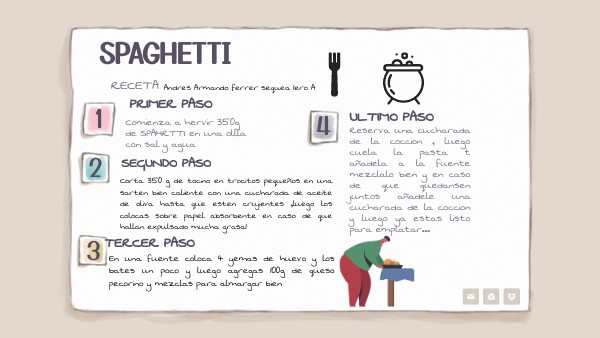 SPAGHETTI
RECETA Andres Armando ferrer seguea 1ero A
1
PRIMER PASO
Comienza a hervir 350g
de SPAHRTTI en una olla
con sal y agua
2
SEGUNDO PASO
Corta 350 g de tocino en trocitos pequeños en una
sartén bien caliente con una cucharada de aceite
de oliva hasta que esten crujentes ,luego los
colocas sobre papel absorbente en caso de que
hallan expulsado mucha grasa!
3
TERCER PASO
En una fuente coloca 4 yemas de huevo y los
bates un poco y luego agregas 100g de queso
pecorino y mezclas para almargar bien
4
ULTIMO PASO
Reserva una cucharada
de la coccion , luego
cuela la pasta t
añadela a la fuente
mezclalo bien y en caso
de que quedansen
juntos añadele una
cucharada de la coccion
y luego ya estas listo
para emplatar...